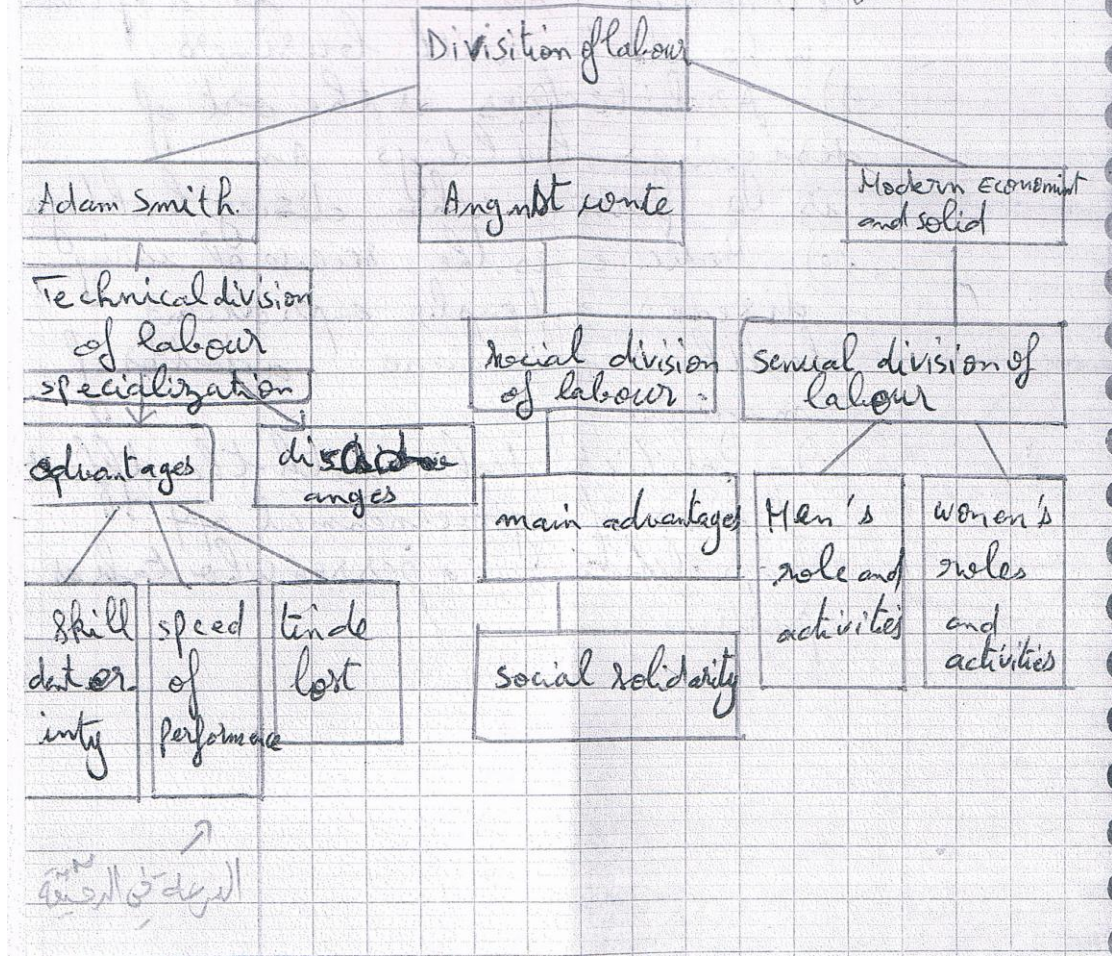 Divisition of labour
Adam Smith.
Angust conte
Modern Economist
and solid
Technical division
of labour
specialization
social division
of labour.
senual division of
labour
advantages
dis
anges
main advantages
Men's
role and
activities
women's
roles
and
activities
skill
dexter
inty
speed
of
performance
tinde
lost
social solidarity
السرعة في